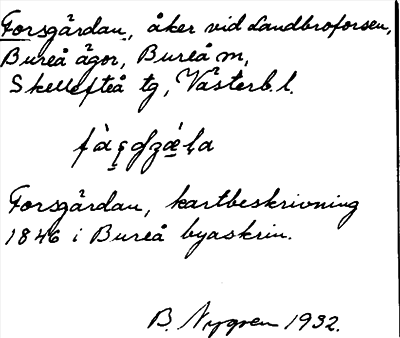 Forsgärdan, åker vid Landbroforsen,
Bureå ägor, Bureå m,
Skellefteå tg, Västerb.l.
Forsgärdan, kartbeskrivning
1846 i Bureå byaskrin.
B. Nygren 1932.